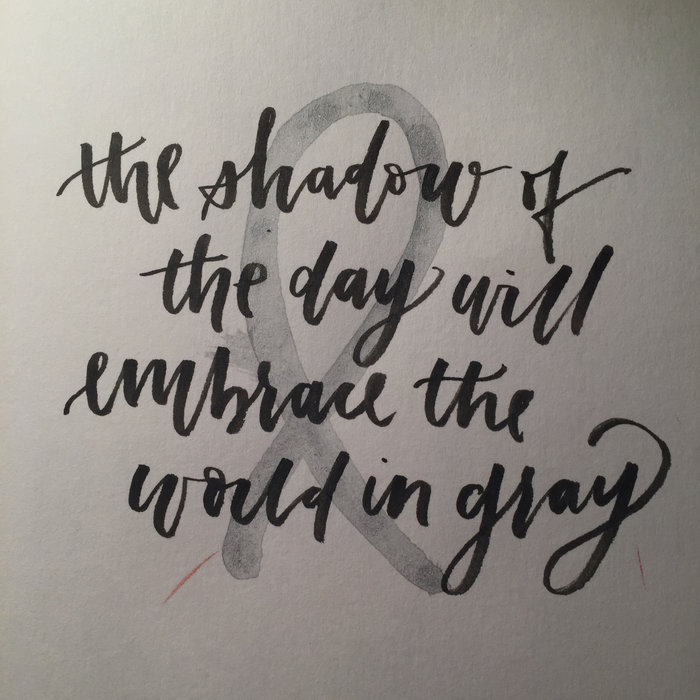 the shadow of
the day will
embrace the
world in gray